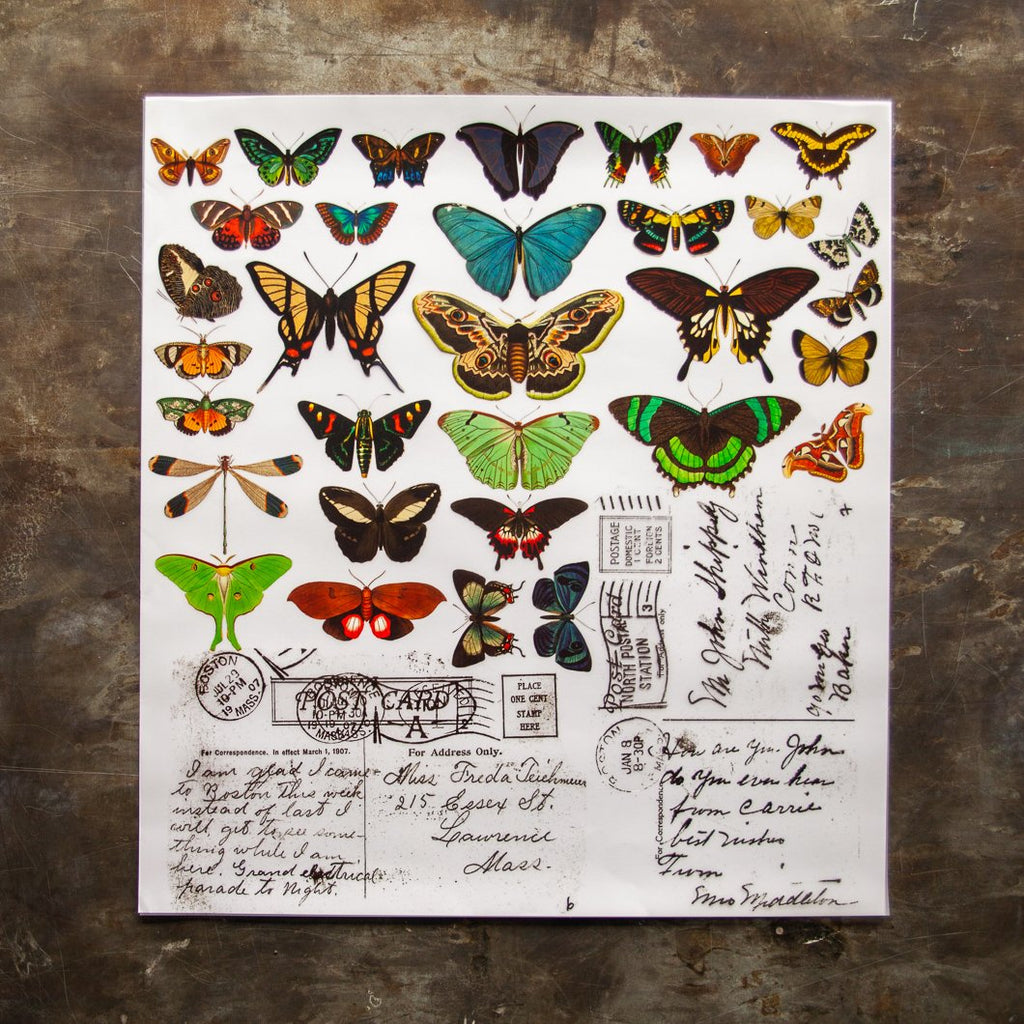 BOSTON
JUL 29
10-PM
19 07
MASS
POST CARD
A
PLACE
ONE CENT
STAMP
HERE
For Correspondence. In effect March 1, 1907.
For Address Only.
I am glad I came
to Boston this week
instead of last I
will get to see some-
thing while I am
here. Grand electrical
parade to Night.
Miss Freda Teichmeier
215 Essex St.
Lawrence
Mass.
POSTAGE
DOMESTIC
1 CENT
FOREIGN
2 CENTS
Post Card
NORTH POSTAL
STATION
3
Mr John
Windham
Conn
JAN 8
8-30P
For Correspondence
How are you John
do you ever hear
from Carrie
best wishes
From
Middleton
b